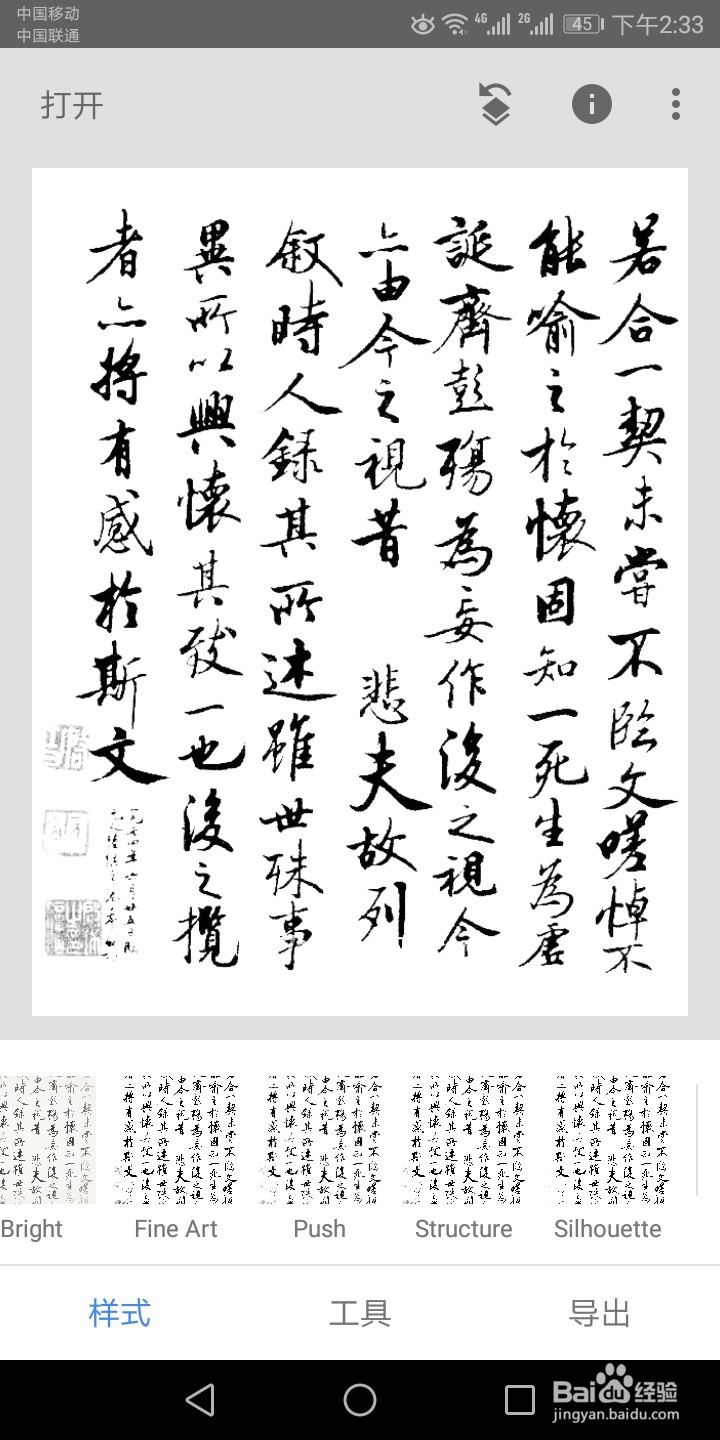 中国移动
中国联通
4G 2G 45 下午2:33
打开
若合一契未嘗不臨文嗟悼不
能喻之於懷固知一死生為虛
誕齊彭殤為妄作後之視今
亦由今之視昔 悲夫故列
叙時人錄其所述雖世殊事
異所以興懷其致一也後之攬
者亦將有感於斯文
Bright Fine Art Push Structure Silhouette
样式 工具 导出
Baidu经验
jingyan.baidu.com